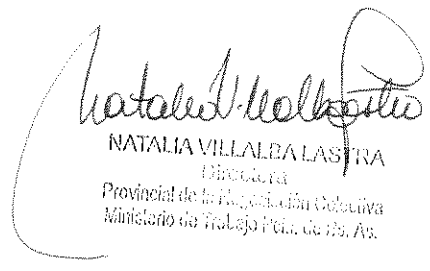 NATALIA VILLALBA LASTRA
Directora
Provincial de la Negociación Colectiva
Ministerio de Trabajo Pcia. de Bs. As.